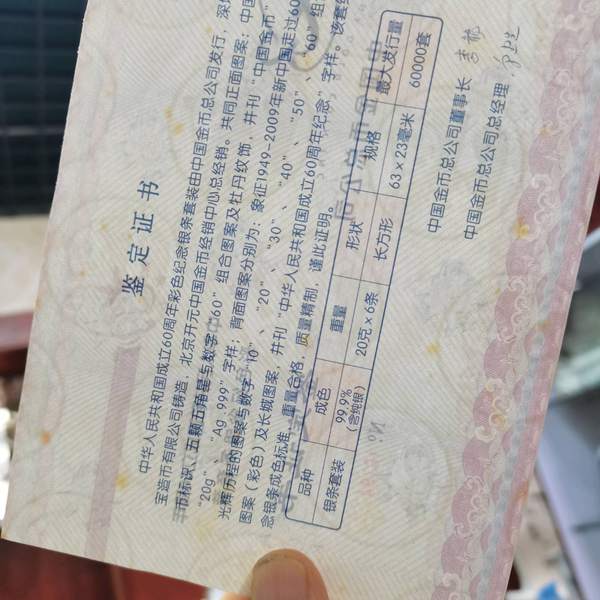 鉴定证书
中华人民共和国成立60周年彩色纪念银条套装由中国金币总公司发行，深圳
宝造币有限公司铸造，北京开元中国金币经销中心总经销。共同正面图案：中
币标识、五颗五角星与数字“60”组合图案及牡丹纹饰，并刊“中国金币”
“20g”、“Ag 999”字样；背面图案分别为：象征1949-2009年新中国走过60
光辉历程的图案与数字“10”、“20”、“30”、“40”、“50”、“60”组
图案（彩色）及长城图案，并刊“中华人民共和国成立60周年纪念”字样。该套
念银条成色标准，重量合格，质量精制，谨此证明。
品种 成色 重量 形状 规格 最大发行量
银条套装 99.9% 含纯银） 20克×6条 长方形 63×23毫米 60000套
中国金币总公司董事长
中国金币总公司总经理